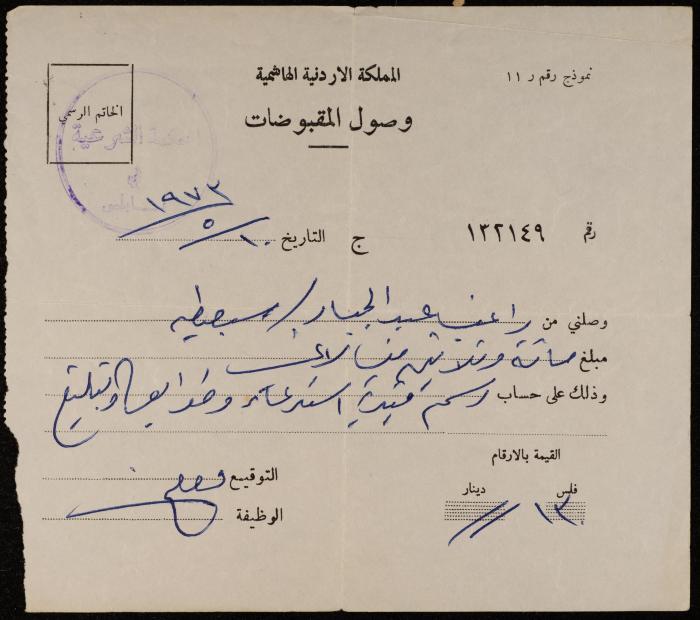 نموذج رقم ر ١١
المملكة الاردنية الهاشمية
وصول المقبوضات
الخاتم الرسمي
المحكمة الشرعية
في
نابلس
رقم ١٣٢١٤٩ ج التاريخ ١٠/٥/١٩٧٢
وصلني من راغب عبد الجبار / سبسطيه
مبلغ مائة وثلاثين فلسا لاغير
وذلك على حساب رسم استدعاء وتبليغ
القيمة بالارقام
فلس دينار
١٣٠ //
التوقيع
الوظيفة